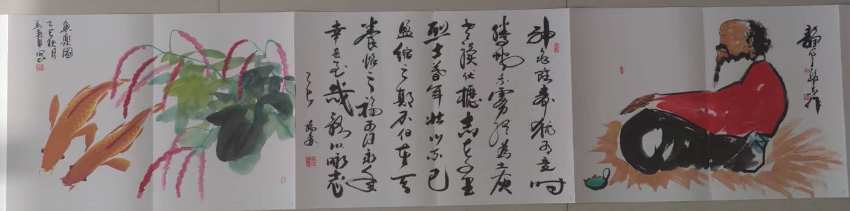 神龜雖壽猶有竟時
騰蛇乘霧終為土灰
老驥伏櫪志在千里
烈士暮年壯心不已
盈縮之期不但在天
養怡之福可得永年
幸甚至哉歌以詠志
乙巳
魚樂圖
乙巳秋月